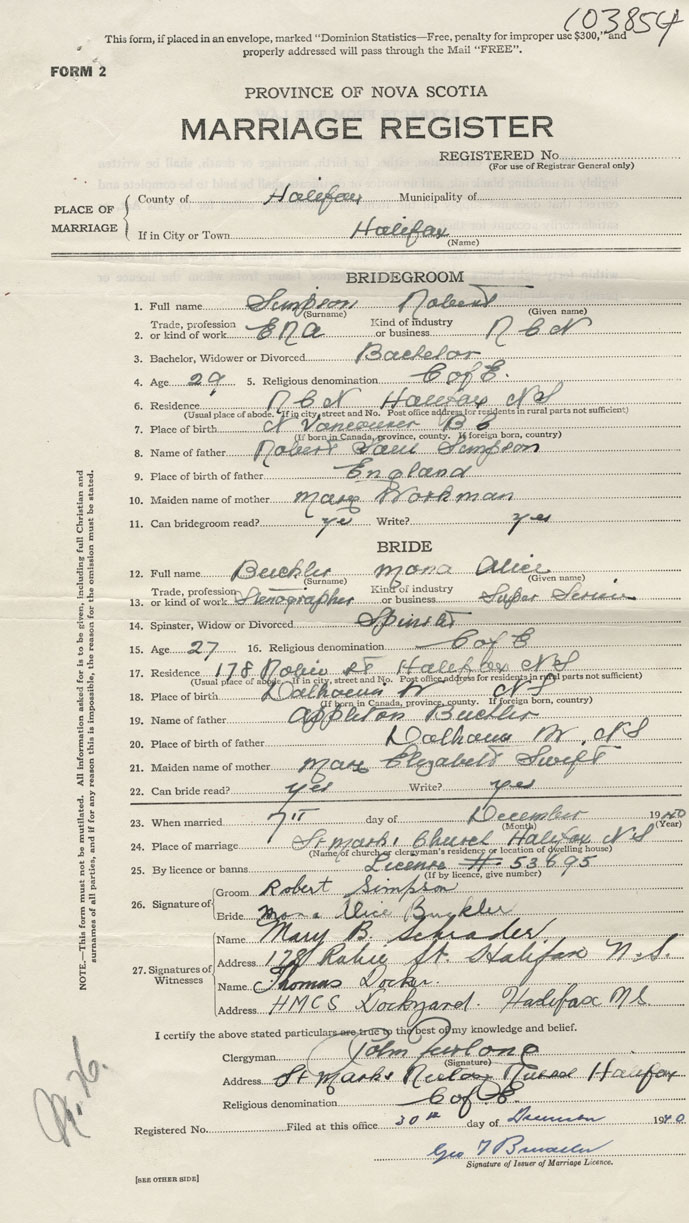 103854
This form, if placed in an envelope, marked "Dominion Statistics—Free, penalty for improper use $300," and
properly addressed will pass through the Mail "FREE".
FORM 2
PROVINCE OF NOVA SCOTIA
MARRIAGE REGISTER
REGISTERED No.
(For use of Registrar General only)
PLACE OF MARRIAGE
County of Halifax Municipality of
If in City or Town Halifax
(Name)
BRIDEGROOM
1. Full name Simpson Robert
(Surname) (Given name)
2. Trade, profession or kind of work ERA Kind of industry or business R C N
3. Bachelor, Widower or Divorced Bachelor
4. Age 29 5. Religious denomination C of E.
6. Residence R C N Halifax NS
(Usual place of abode. If in city, street and No. Post office address for residents in rural parts not sufficient)
7. Place of birth N Vancouver B C
(If born in Canada, province, county. If foreign born, country)
8. Name of father Robert Simpson
9. Place of birth of father England
10. Maiden name of mother Mary Workman
11. Can bridegroom read? yes Write? yes
BRIDE
12. Full name Buckler Mona Alice
(Surname) (Given name)
13. Trade, profession or kind of work Stenographer Kind of industry or business Super Service
14. Spinster, Widow or Divorced Spinster
15. Age 27 16. Religious denomination C of E
17. Residence 178 Robie St Halifax NS
(Usual place of abode. If in city, street and No. Post office address for residents in rural parts not sufficient)
18. Place of birth Dalhousie W NS
(If born in Canada, province, county. If foreign born, country)
19. Name of father Appleton Buckler
20. Place of birth of father Dalhousie W, NS
21. Maiden name of mother Mary Elizabeth Swift
22. Can bride read? yes Write? yes
23. When married 7th day of December 1940
(Month) (Year)
24. Place of marriage St Marks Church Halifax NS
(Name of church or clergyman's residence or location of dwelling house)
25. By licence or banns License # 53695
(If by licence, give number)
26. Signature of
Groom Robert Simpson
Bride Mona Alice Buckler
27. Signatures of Witnesses
Name Mary B. Schrader
Address 178 Robie St. Halifax N.S.
Name Thomas Docker
Address HMCS Dockyard. Halifax NS
I certify the above stated particulars are true to the best of my knowledge and belief.
Clergyman John Furlong
(Signature)
Address St Marks Halifax
Religious denomination C of E.
Registered No. Filed at this office 30th day of December 1940
Geo
Signature of Issuer of Marriage Licence.
[SEE OTHER SIDE]
NOTE.—This form must not be mutilated. All information asked for is to be given, including full Christian and
surnames of all parties, and if for any reason this is impossible, the reason for the omission must be stated.